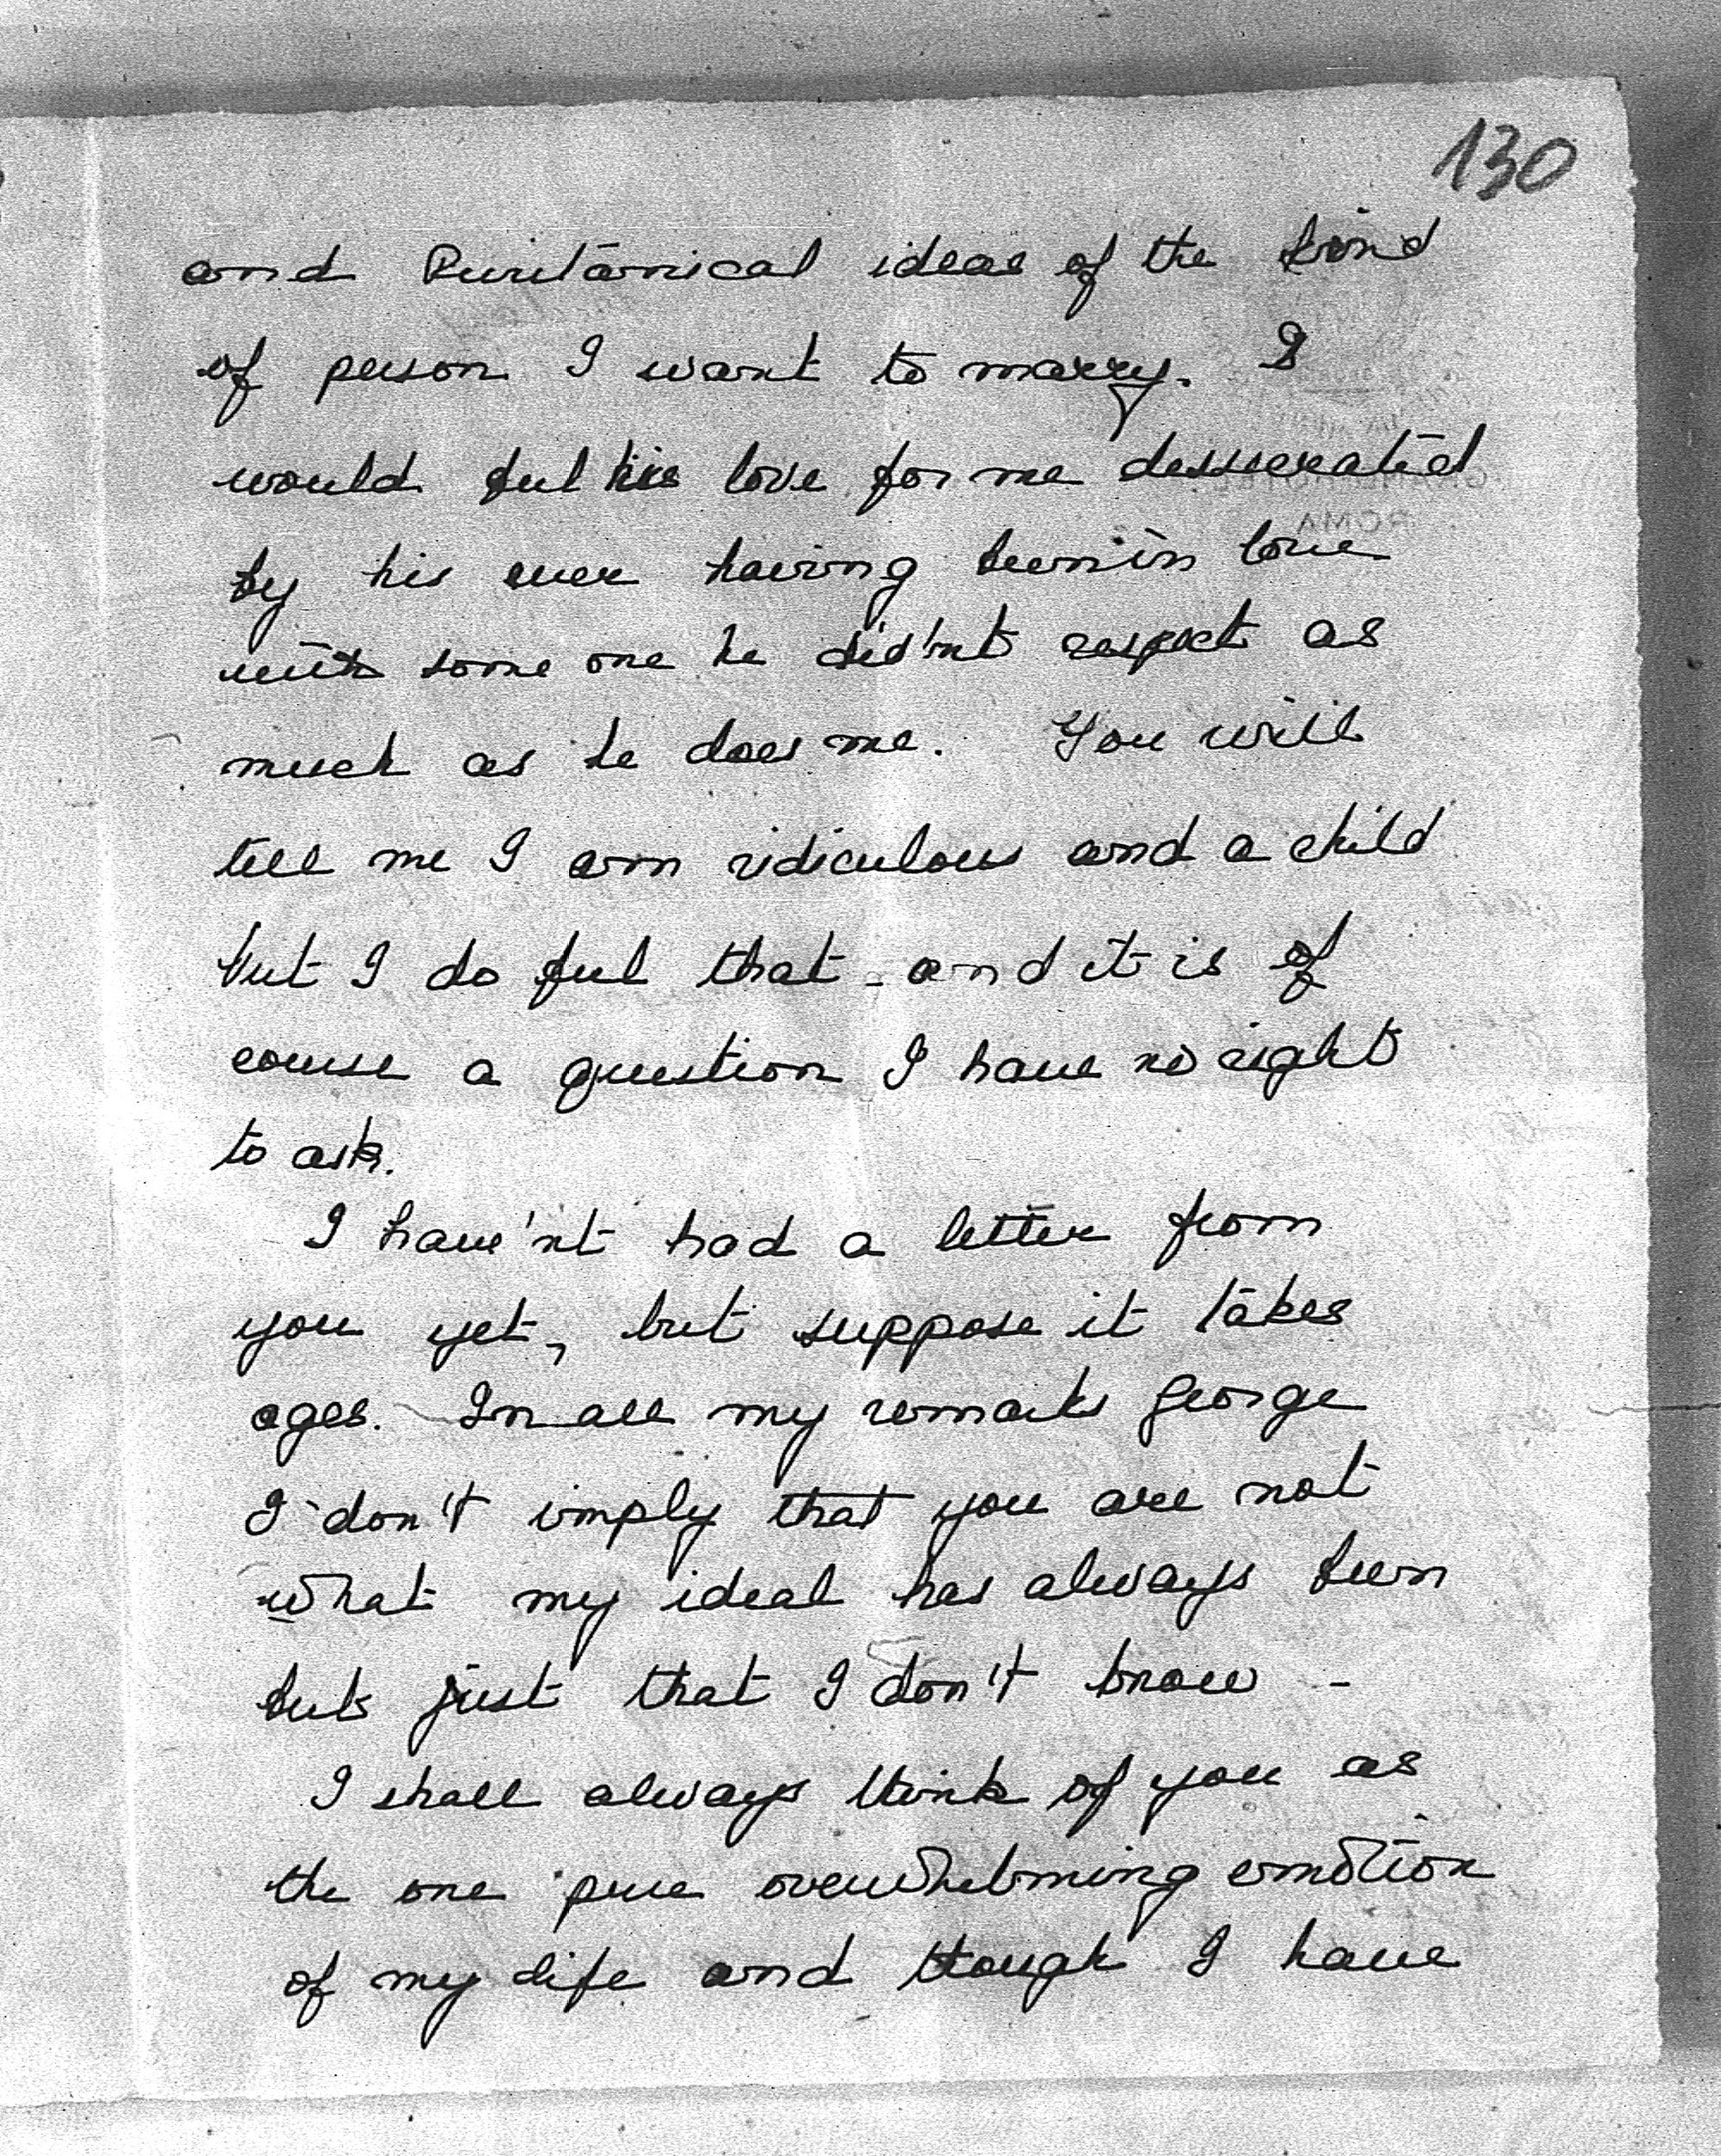 130
and Puritanical ideas of the kind
of person I want to marry. I
would feel his love for me dessecrated
by his ever having been in love
with some one he did'nt respect as
much as he does me. You will
tell me I am ridiculous and a child
but I do feel that - and it is of
course a question I have no right
to ask.
I have'nt had a letter from
you yet, but suppose it takes
ages. In all my remarks George
I don't imply that you are not
what my ideal has always been
but just that I don't know -
I shall always think of you as
the one pure overwhelming emotion
of my life and though I have